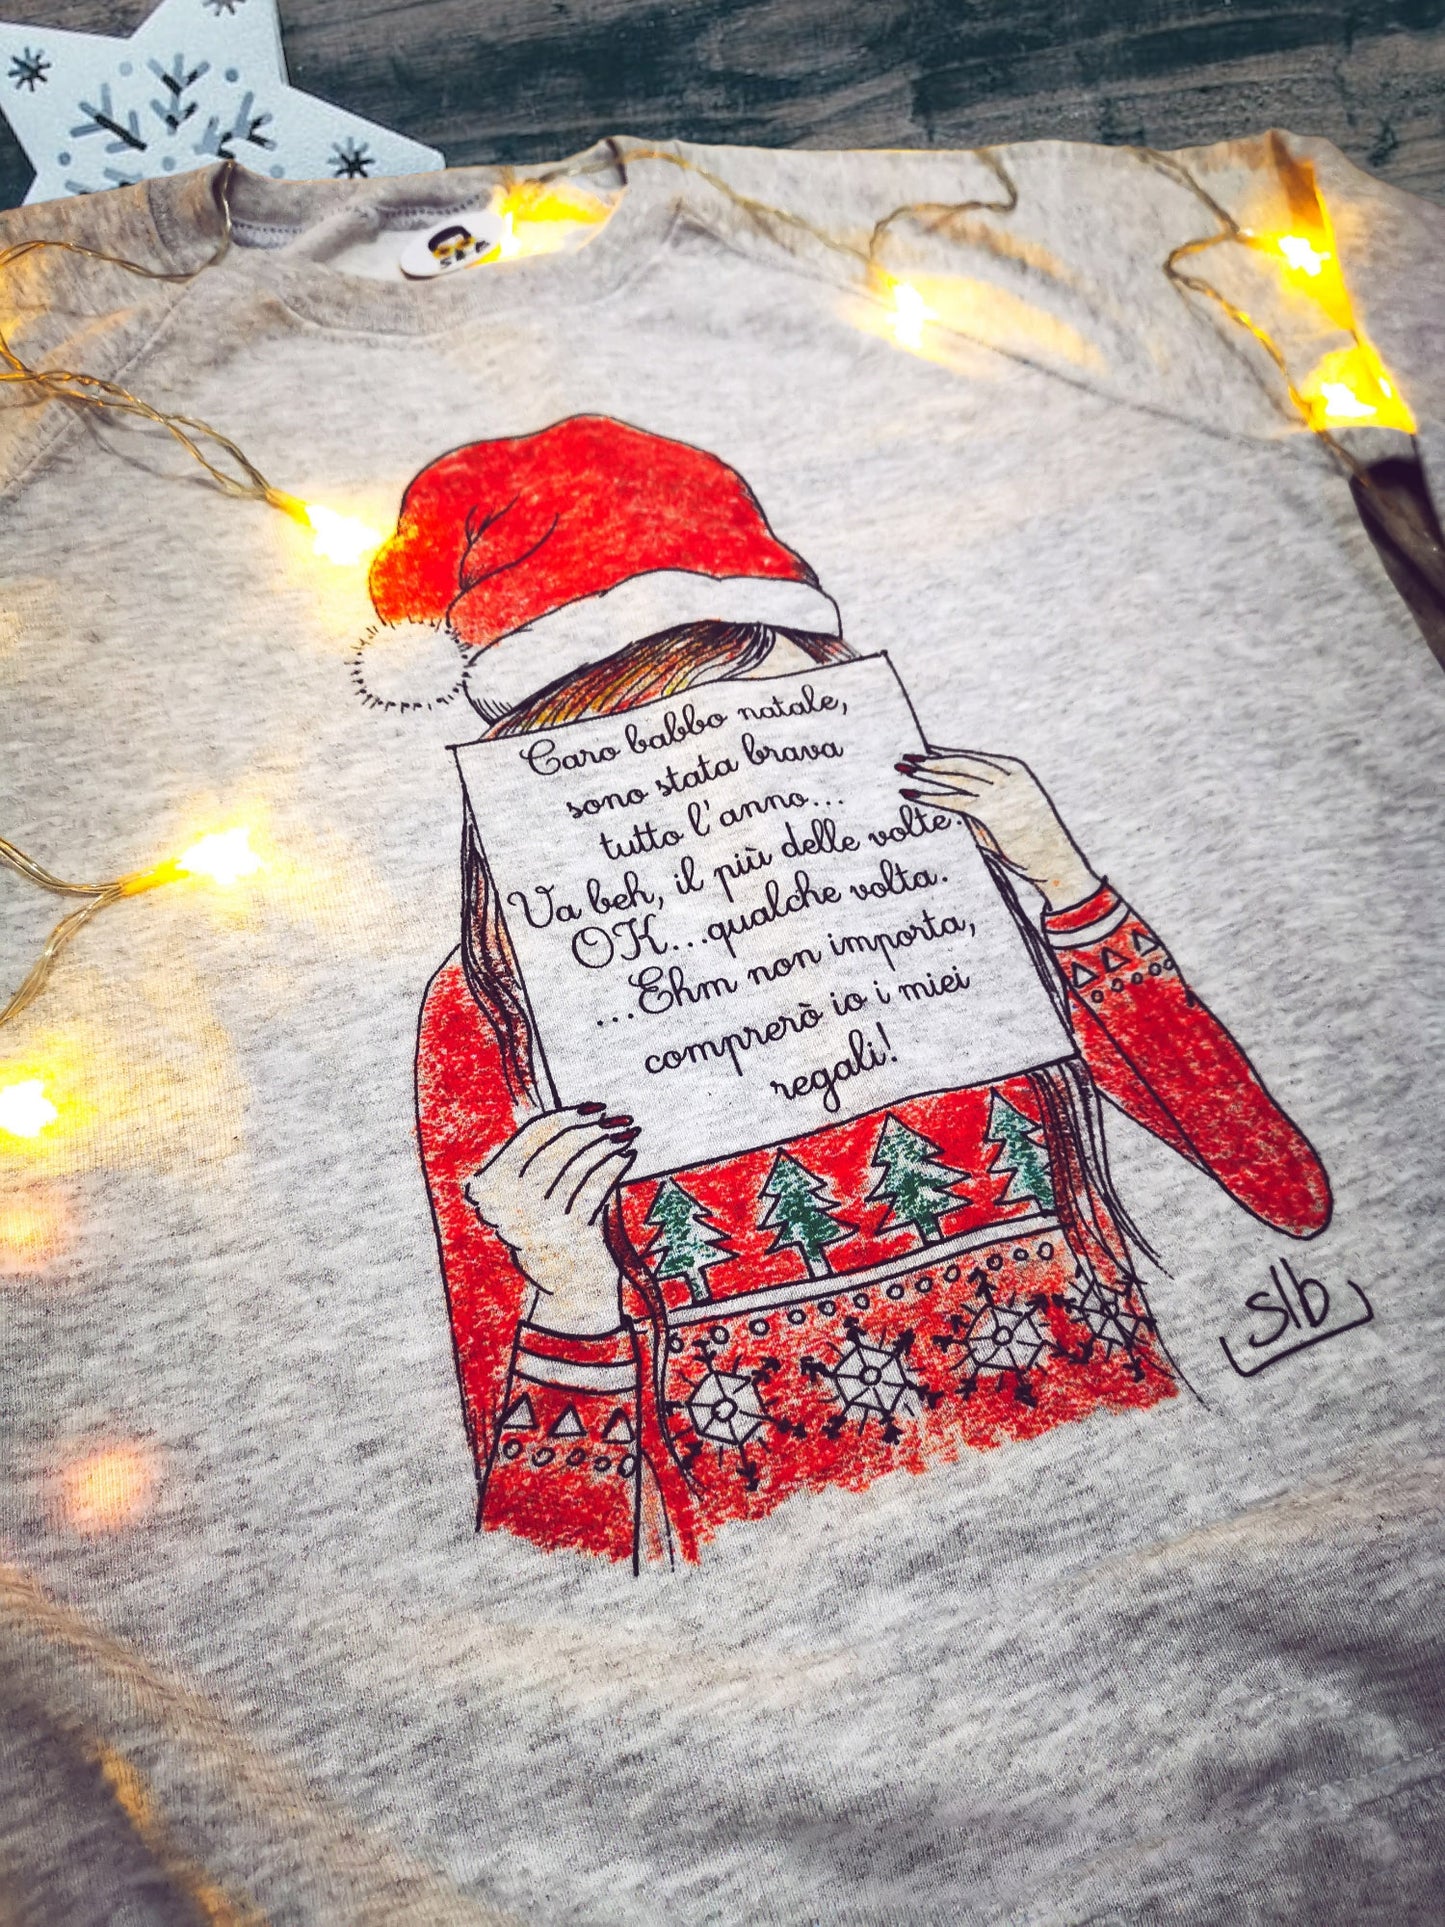 Caro babbo natale,
sono stata brava
tutto l'anno...
Va beh, il più delle volte.
OK...qualche volta.
...Ehm non importa,
comprerò io i miei
regali!
slb